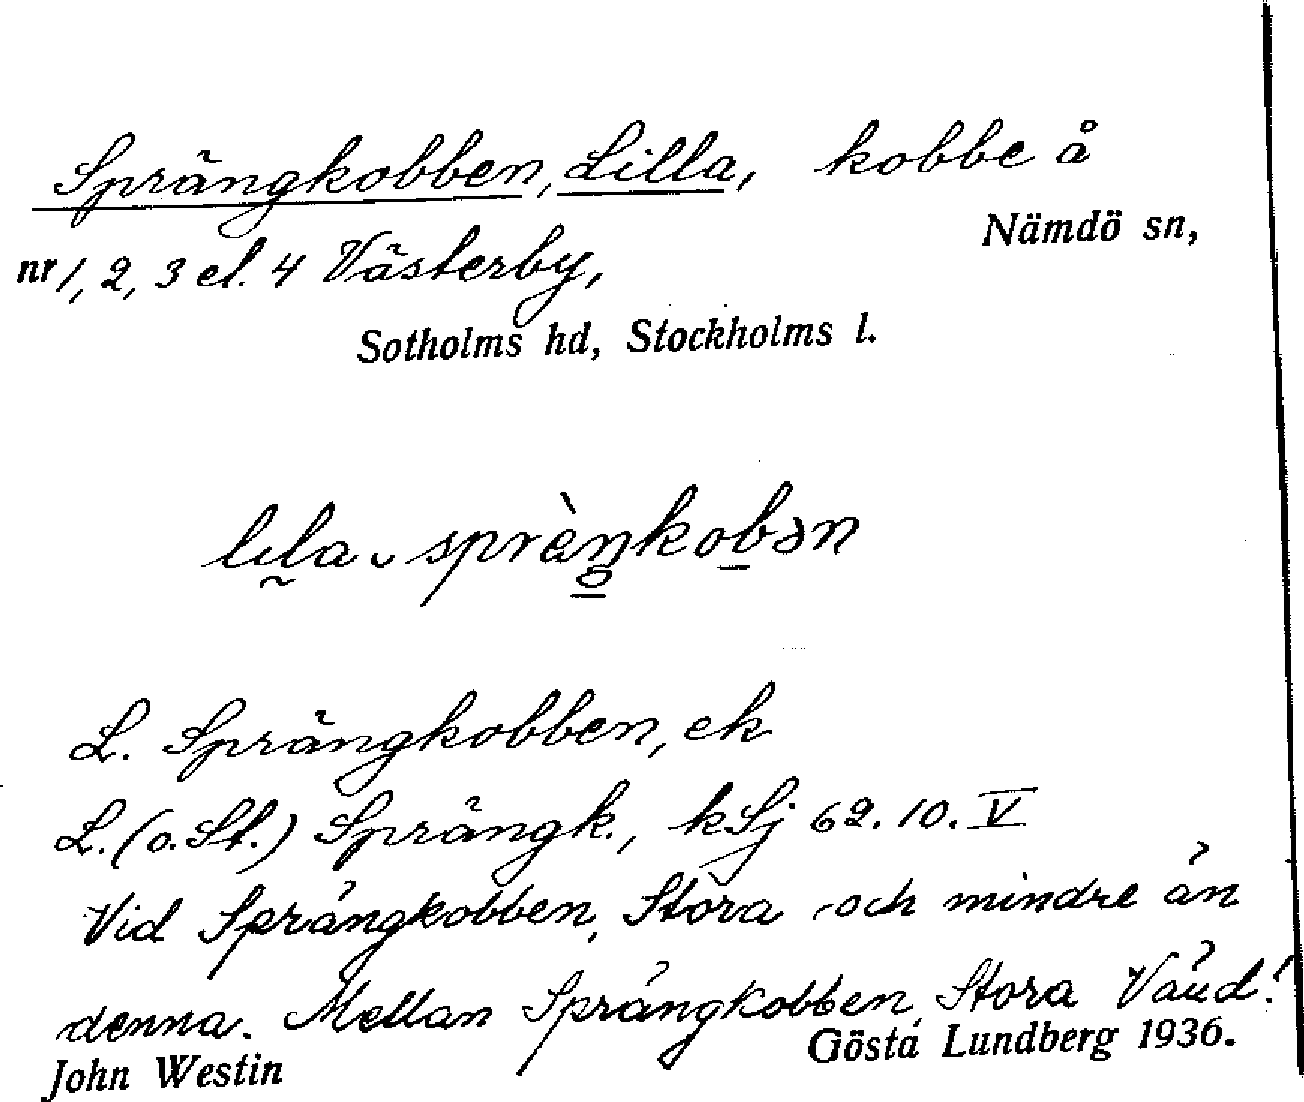 Sprängkobben, Lilla, kobbe å
Nämdö sn,
nr 1, 2, 3 el. 4 Västerby,
Sotholms hd, Stockholms l.
lɩla ᴗ sprèŋkobən
L. Sprängkobben, ek
L. (o. St.) Sprängk., kSj 62. 10. V
Vid Sprängkobben, Stora och mindre än
denna. Mellan Sprängkobben, Stora
John Westin
Gösta Lundberg 1936.